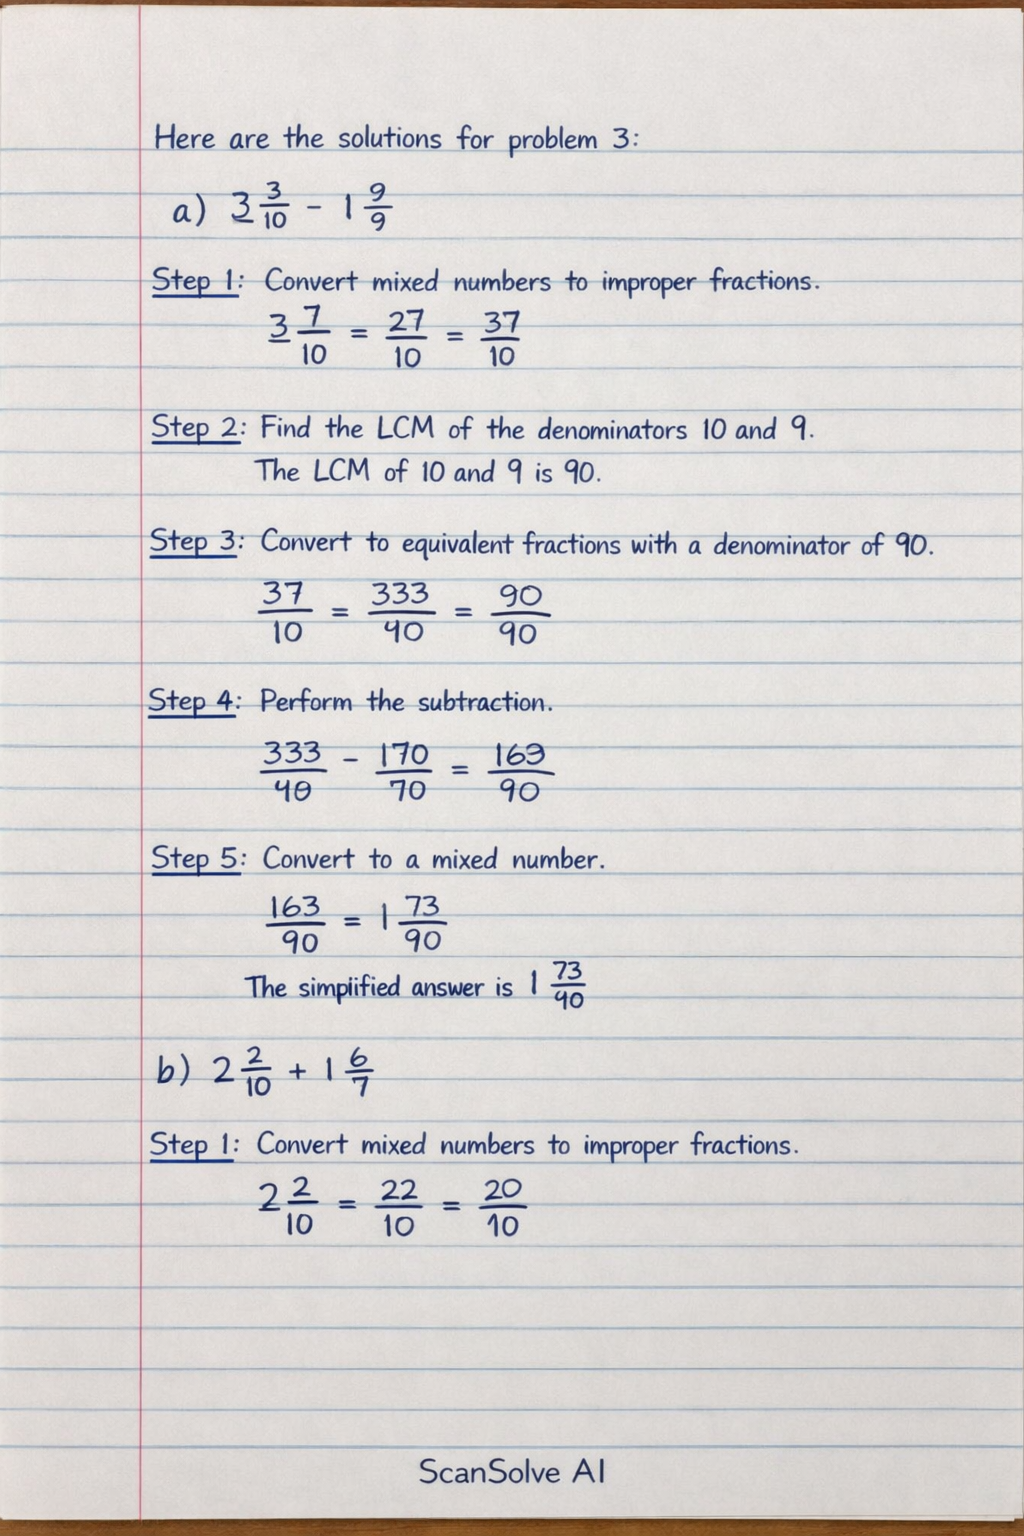 Here are the solutions for problem 3:
a) 3 3/10 - 1 9/9
Step 1: Convert mixed numbers to improper fractions.
3 7/10 = 27/10 = 37/10
Step 2: Find the LCM of the denominators 10 and 9.
The LCM of 10 and 9 is 90.
Step 3: Convert to equivalent fractions with a denominator of 90.
37/10 = 333/40 = 90/90
Step 4: Perform the subtraction.
333/40 - 170/70 = 169/90
Step 5: Convert to a mixed number.
163/90 = 1 73/90
The simplified answer is 1 73/40
b) 2 2/10 + 1 6/7
Step 1: Convert mixed numbers to improper fractions.
2 2/10 = 22/10 = 20/10
ScanSolve AI